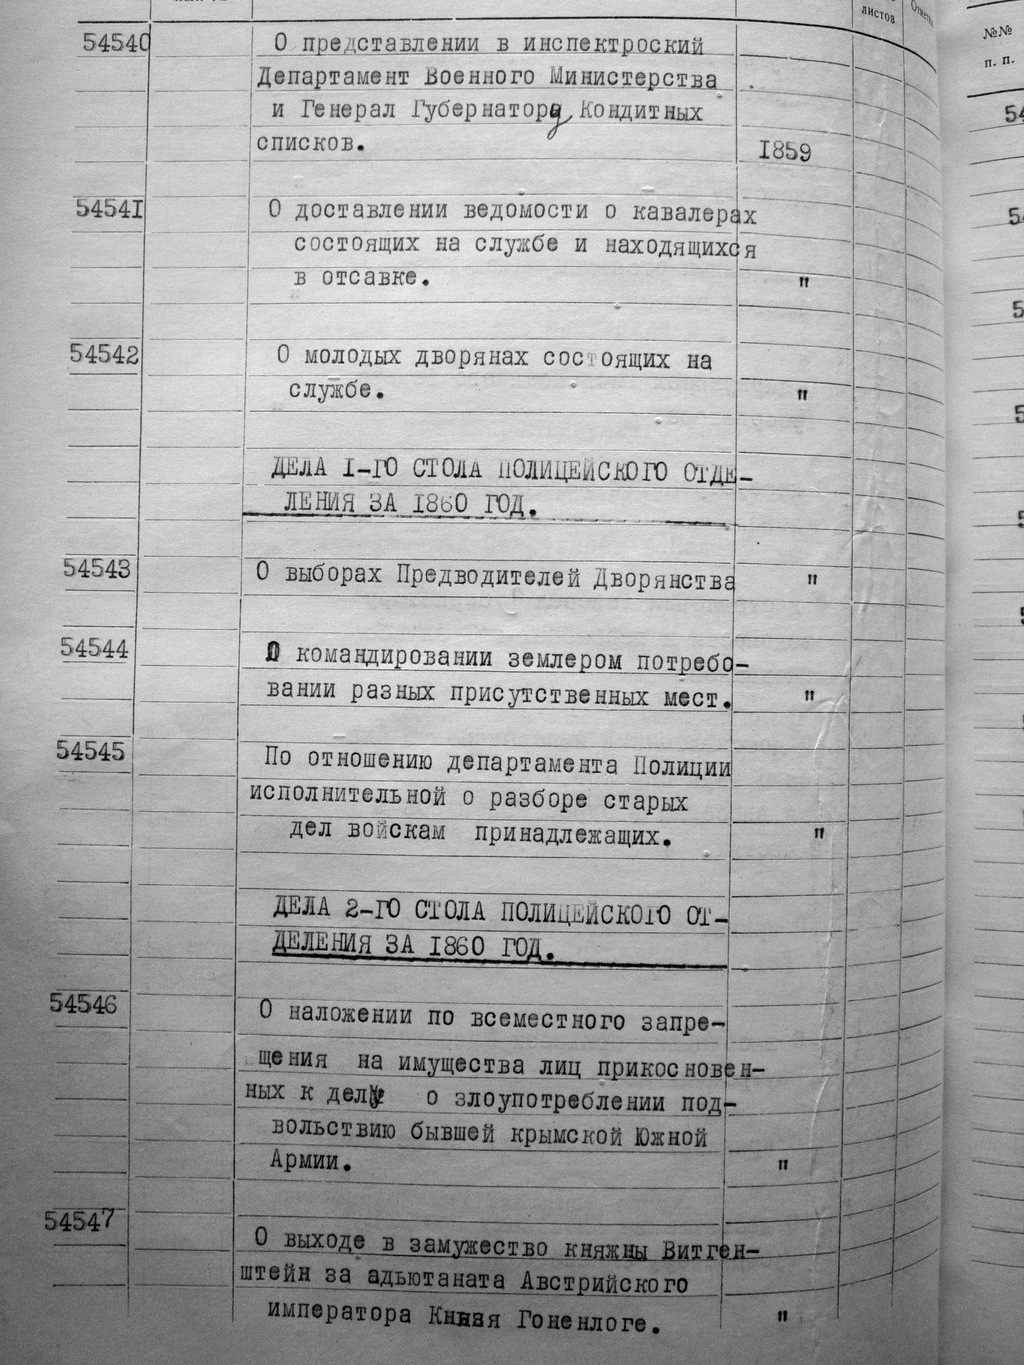 листов
Отметка
№№
п. п.
54540
О представлении в инспектроский
Департамент Военного Министерства
и Генерал Губернатору Кондитных
списков.
1859
54541
О доставлении ведомости о кавалерах
состоящих на службе и находящихся
в отсавке.
"
54542
О молодых дворянах состоящих на
службе.
"
ДЕЛА I-ГО СТОЛА ПОЛИЦЕЙСКОГО ОТДЕ-
ЛЕНИЯ ЗА 1860 ГОД.
54543
О выборах Предводителей Дворянства
"
54544
О командировании землером потребо-
вании разных присутственных мест.
"
54545
По отношению департамента Полиции
исполнительной о разборе старых
дел войскам принадлежащих.
"
ДЕЛА 2-ГО СТОЛА ПОЛИЦЕЙСКОГО ОТ-
ДЕЛЕНИЯ ЗА 1860 ГОД.
54546
О наложении по всеместного запре-
щения на имущества лиц прикосновен-
ных к делу о злоупотреблении под-
вольствию бывшей крымской Южной
Армии.
"
54547
О выходе в замужество княжны Витген-
штейн за адьютаната Австрийского
императора Князя Гоненлоге.
"